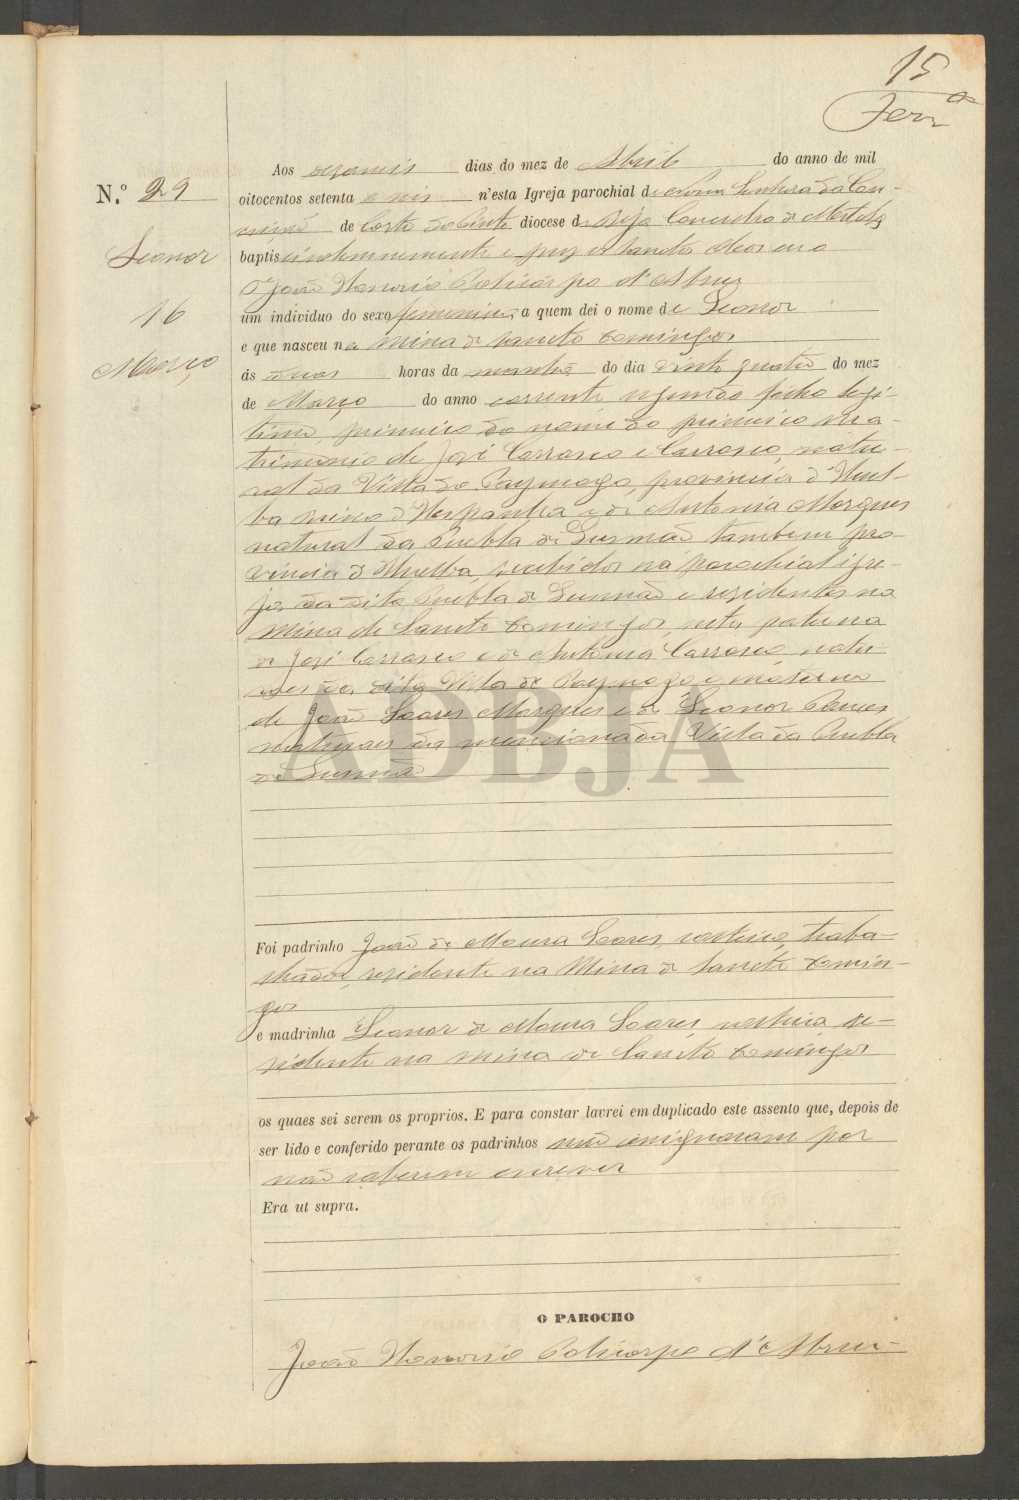 15
Ferrª
Nº 29
Leonor
16
Março
Aos dezaseis dias do mez de Abril do anno de mil
oitocentos setenta e seis n'esta Igreja parochial de Nossa Senhora da Con-
ceição de Corte do Pinto diocese de Beja Concelho de Mertola
baptisei solemnemente e puz os Sanctos Oleos eu o
Pe João Honorio Policarpo d'Abreu
um individuo do sexo femenino, a quem dei o nome de Leonor
e que nasceu na mina de Sancto Domingos
ás duas horas da manhã do dia vinte quatro do mez
de Março do anno corrente segundo filho legi-
timo, primeiro do nome do primeiro ma-
trimonio de José Carrasco e Carrasco, natu-
ral da Villa do Paymogo, provincia d'Huel-
ba reino d'Hespanha e de Antonia Marques
natural da Puebla de Gusmão tambem pro-
vincia d'Huelba, recebidos na parochial igre-
ja da dita Puebla de Gusmão e residentes na
Mina de Sancto Domingos, neta paterna
de José Carrasco e de Antonia Carrasco, natu-
raes da dita Villa de Paymogo e materna
de João Soares Marques e de Leonor
naturaes da mencionada Villa da Puebla
de Gusmão
Foi padrinho João de Moura Soares, solteiro, traba-
lhador, residente na Mina de Sancto Domin-
gos
e madrinha Leonor de Moura Soares, solteira re-
sidente na mina de Sancto Domingos
os quaes sei serem os proprios. E para constar lavrei em duplicado este assento que, depois de
ser lido e conferido perante os padrinhos não assignaram por
não saberem escrever
Era ut supra.
O PAROCHO
João Honorio Policarpo d'Abreu
ADBJA